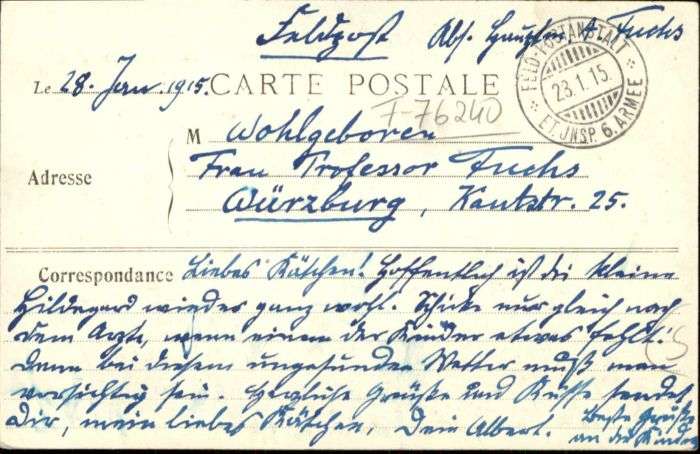 Feldpost Abs. Hauptm. A. Fuchs
Le 28. Jan. 1915. CARTE POSTALE
FELD-POSTANSTALT
28.1.15.
ET. JNSP. 6. ARMEE
F-76240
M Wohlgeboren
Adresse Frau Professor Fuchs
Würzburg, Kantstr. 25.
Correspondance Liebes Kätchen! Hoffentlich ist die kleine
Hildegard wieder ganz wohl. Schicke nur gleich nach
dem Arzte, wenn einem der Kinder etwas fehlt!
Denn bei diesem ungesunden Wetter muß man
vorsichtig sein. Herzliche Grüße und Küsse sendet
Dir, mein liebes Kätchen, Dein Albert. Beste Grüße
an die Kinder